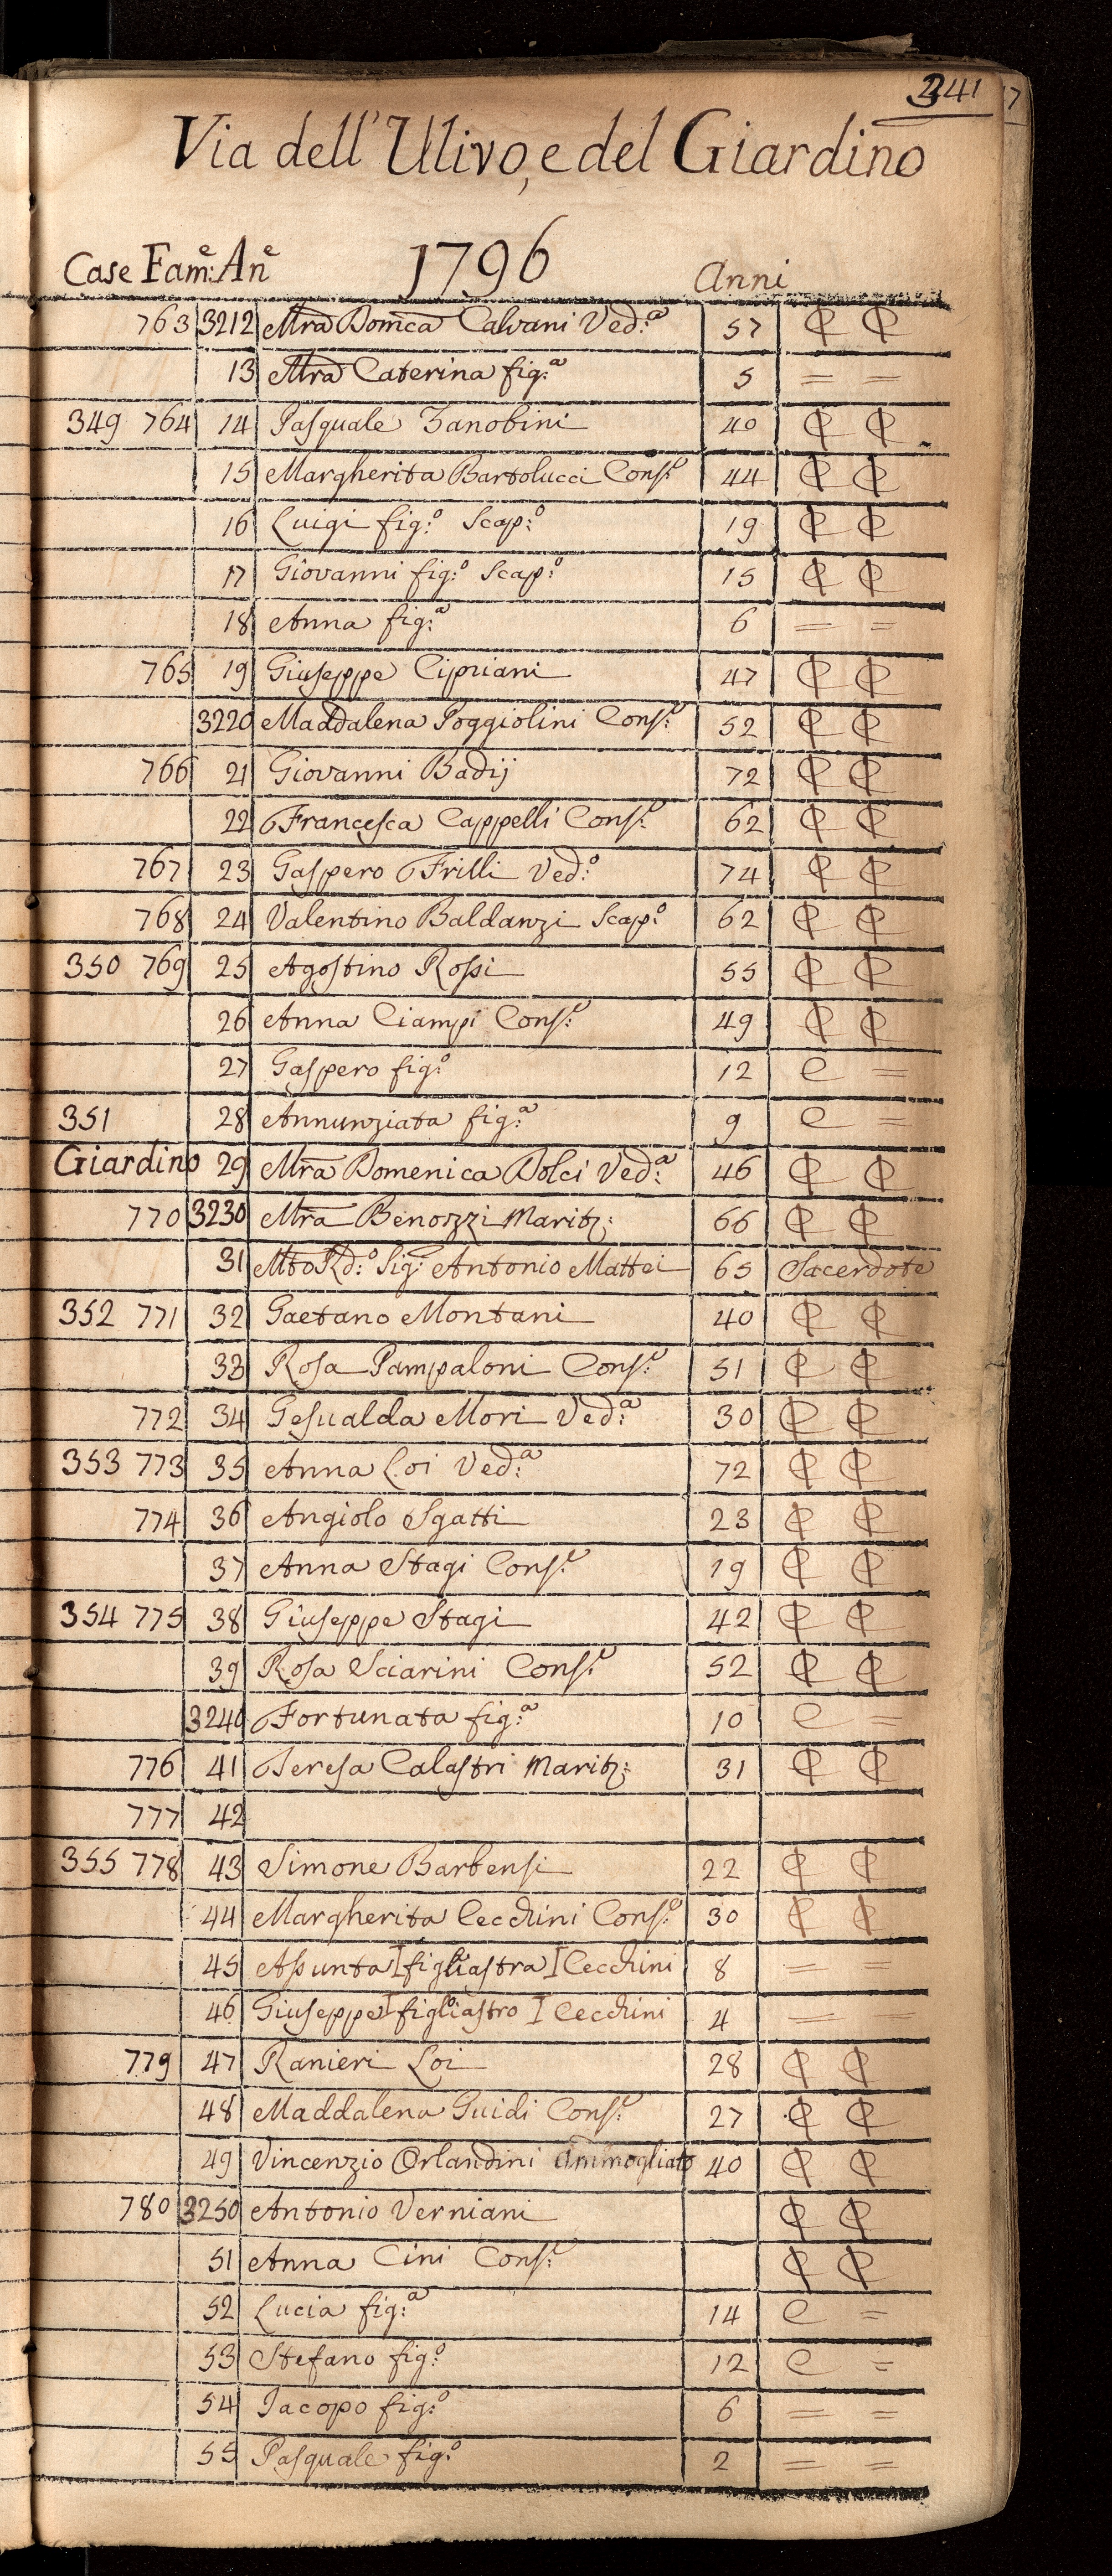 341
Via dell' Ulivo, e del Giardino
Case Fam:e An:e 1796 Anni
763 3212 Mra Domca Calvani Ved:a 57 ₵ ₵
13 Mra Caterina fig:a 5 = =
349 764 14 Pasquale Zanobini 40 ₵ ₵
15 Margherita Bartolucci Cons:e 44 ₵ ₵
16 Luigi fig:o Scap:o 19 ₵ ₵
17 Giovanni fig:o Scap:o 15 ₵ ₵
18 Anna fig:a 6 = =
765 19 Giuseppe Cipriani 47 ₵ ₵
3220 Maddalena Poggiolini Cons:e 52 ₵ ₵
766 21 Giovanni Badij 72 ₵ ₵
22 Francesca Cappelli Cons:e 62 ₵ ₵
767 23 Gaspero Frilli Ved:o 74 ₵ ₵
768 24 Valentino Baldanzi Scap:o 62 ₵ ₵
350 769 25 Agostino Rossi 55 ₵ ₵
26 Anna Ciampi Cons:e 49 ₵ ₵
27 Gaspero fig:o 12 C =
351 28 Annunziata fig:a 9 C =
Giardino 29 Mra Domenica Dolci Ved:a 46 ₵ ₵
770 3230 Mra Benozzi Marit: 66 ₵ ₵
31 Mto Rd:o Sig:e Antonio Mattei 65 Sacerdote
352 771 32 Gaetano Montani 40 ₵ ₵
33 Rosa Pampaloni Cons:e 51 ₵ ₵
772 34 Gesualda Mori Ved:a 30 ₵ ₵
353 773 35 Anna Loi Ved:a 72 ₵ ₵
774 36 Angiolo Sgatti 23 ₵ ₵
37 Anna Stagi Cons:e 19 ₵ ₵
354 775 38 Giuseppe Stagi 42 ₵ ₵
39 Rosa Sciarini Cons:e 52 ₵ ₵
3240 Fortunata fig:a 10 C =
776 41 Teresa Calastri Marit: 31 ₵ ₵
777 42
355 778 43 Simone Barbensi 22 ₵ ₵
44 Margherita Cecchini Cons:e 30 ₵ ₵
45 Assunta I figliastra I Cecchini 8 = =
46 Giuseppe I figliastro I Cecchini 4 = =
779 47 Ranieri Loi 28 ₵ ₵
48 Maddalena Guidi Cons:e 27 ₵ ₵
49 Vincenzio Orlandini Ammogliato 40 ₵ ₵
780 3250 Antonio Verniani ₵ ₵
51 Anna Cini Cons:e ₵ ₵
52 Lucia fig:a 14 C =
53 Stefano fig:o 12 C =
54 Jacopo fig:o 6 = =
55 Pasquale fig:o 2 = =